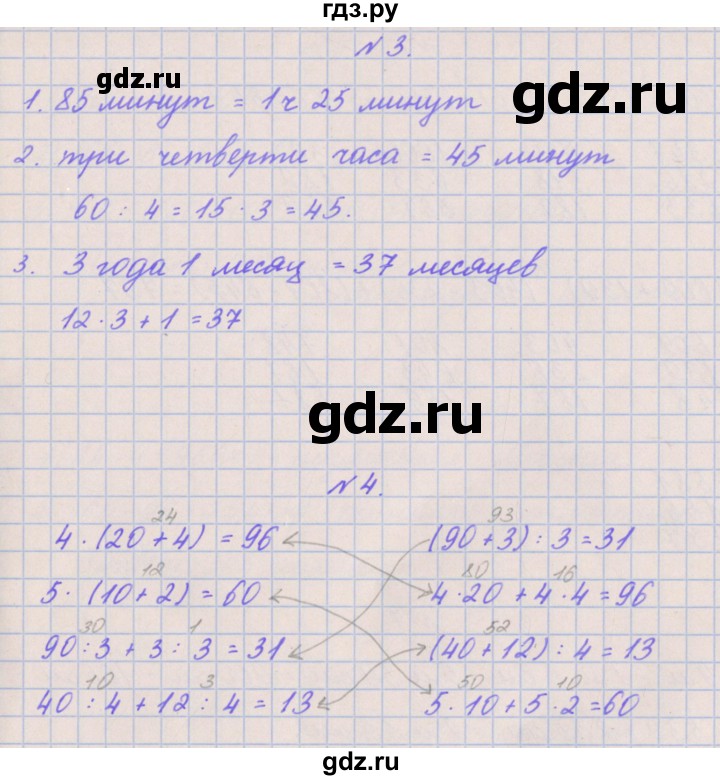 гдз.ру
№ 3.
gdz.ru
gdz.ru
1. 85 минут = 1 ч 25 минут
2. три четверти часа = 45 минут
60 : 4 = 15 · 3 = 45.
3. 3 года 1 месяц = 37 месяцев
12 · 3 + 1 = 37
gdz.ru
№ 4.
24
4 · (20 + 4) = 96
93
(90 + 3) : 3 = 31
12
5 · (10 + 2) = 60
80 16
4 · 20 + 4 · 4 = 96
30 1
90 : 3 + 3 : 3 = 31
52
(40 + 12) : 4 = 13
10 3
40 : 4 + 12 : 4 = 13
50 10
5 · 10 + 5 · 2 = 60
gdz.ru